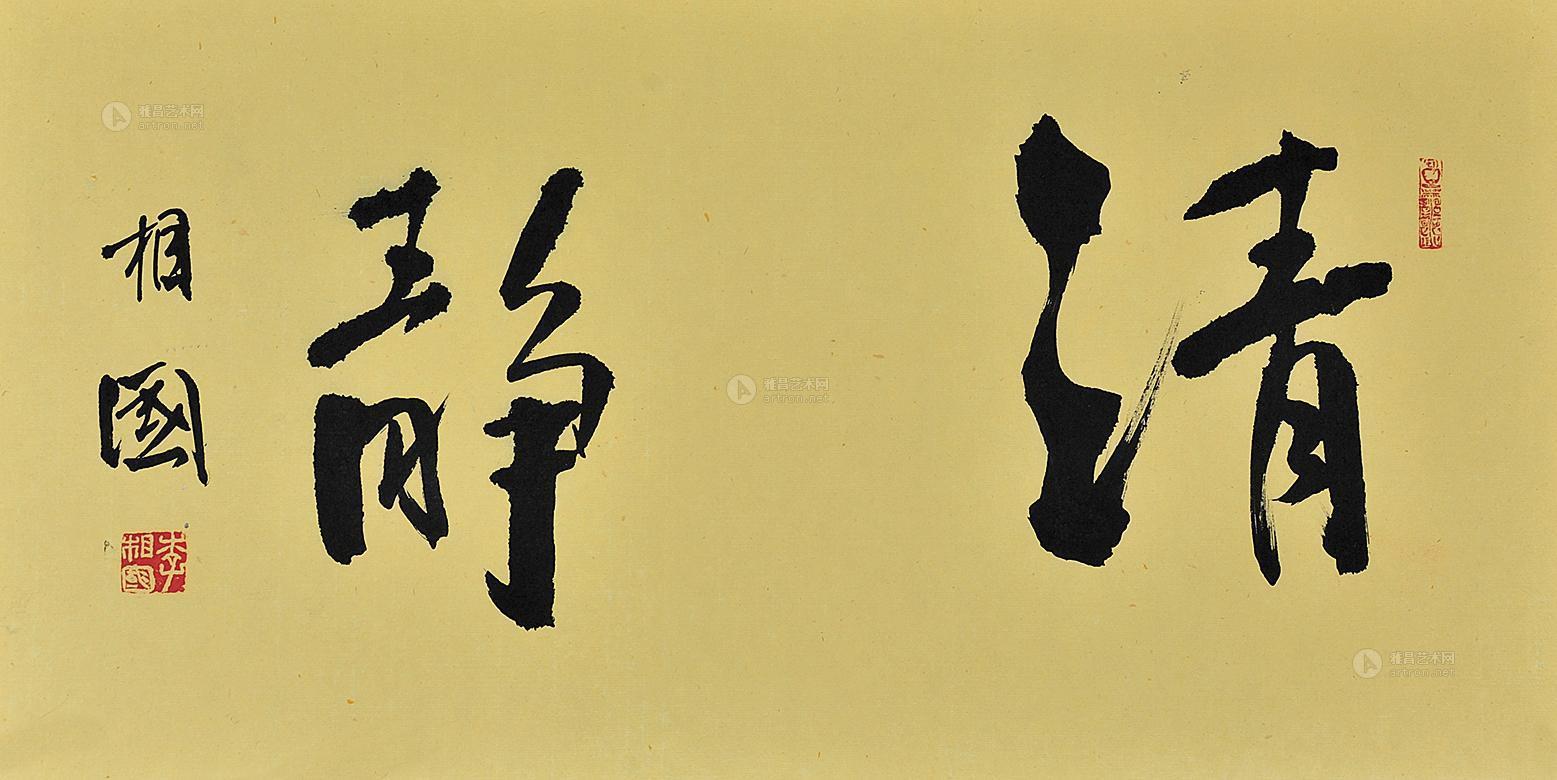 清静
相國
李相國
雅昌艺术网
artron.net
雅昌艺术网
artron.net
雅昌艺术网
artron.net